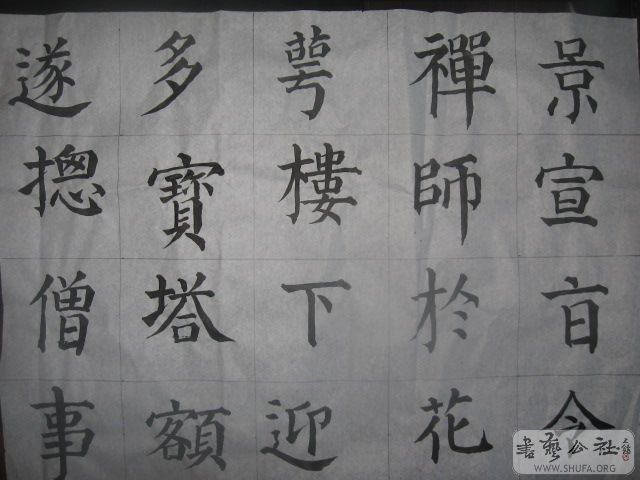 景宣旨令
禪師於花
萼樓下迎
多寶塔額
遂摠僧事
書藝公社
WWW.SHUFA.ORG